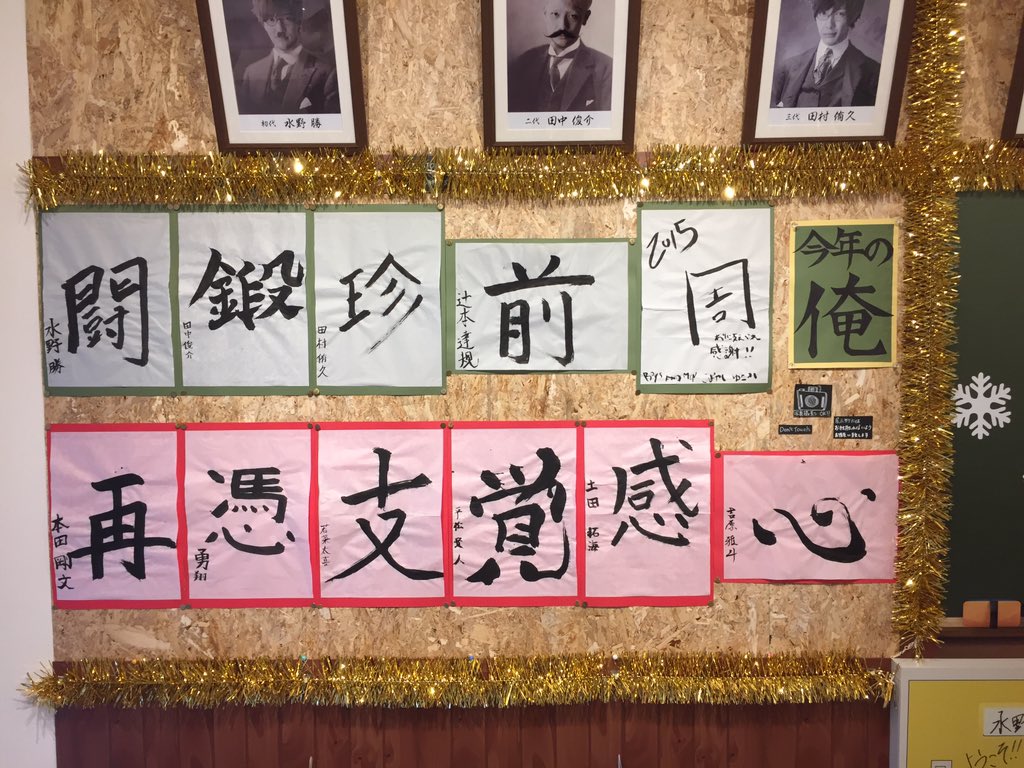 初代 水野 勝
二代 田中 俊介
三代 田村 侑久
闘
水野 勝
鍛
田中俊介
珍
田村侑久
前
辻本達規
2015
周
感謝!!
今年の
俺
Don't Touch
再
本田剛文
憑
勇翔
支
若菜太喜
覚
平松賢人
感
土田 拓海
心
吉原雅斗
水野
ようこそ!!